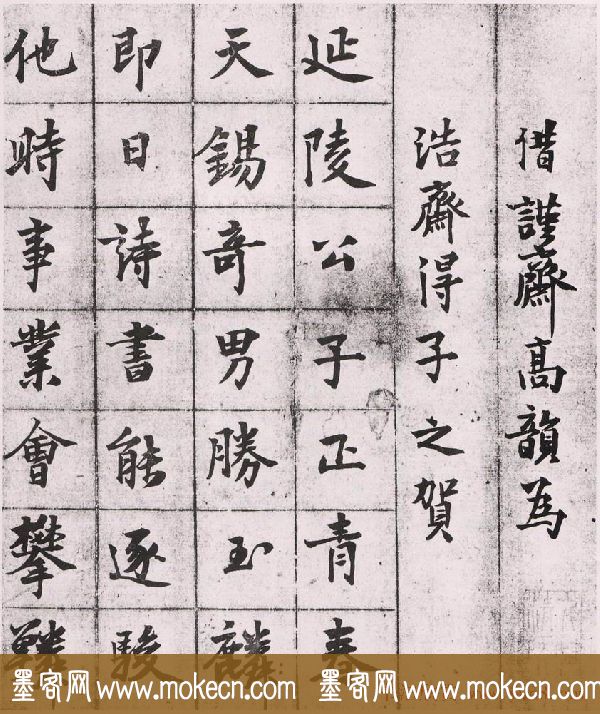 借謹齋高韻為
浩齋得子之賀
延陵公子正青春
天錫奇男勝玉麟
即日詩書能逐駿
他時事業會攀鱗
墨客网 www.mokecn.com 墨客网 www.mokecn.com